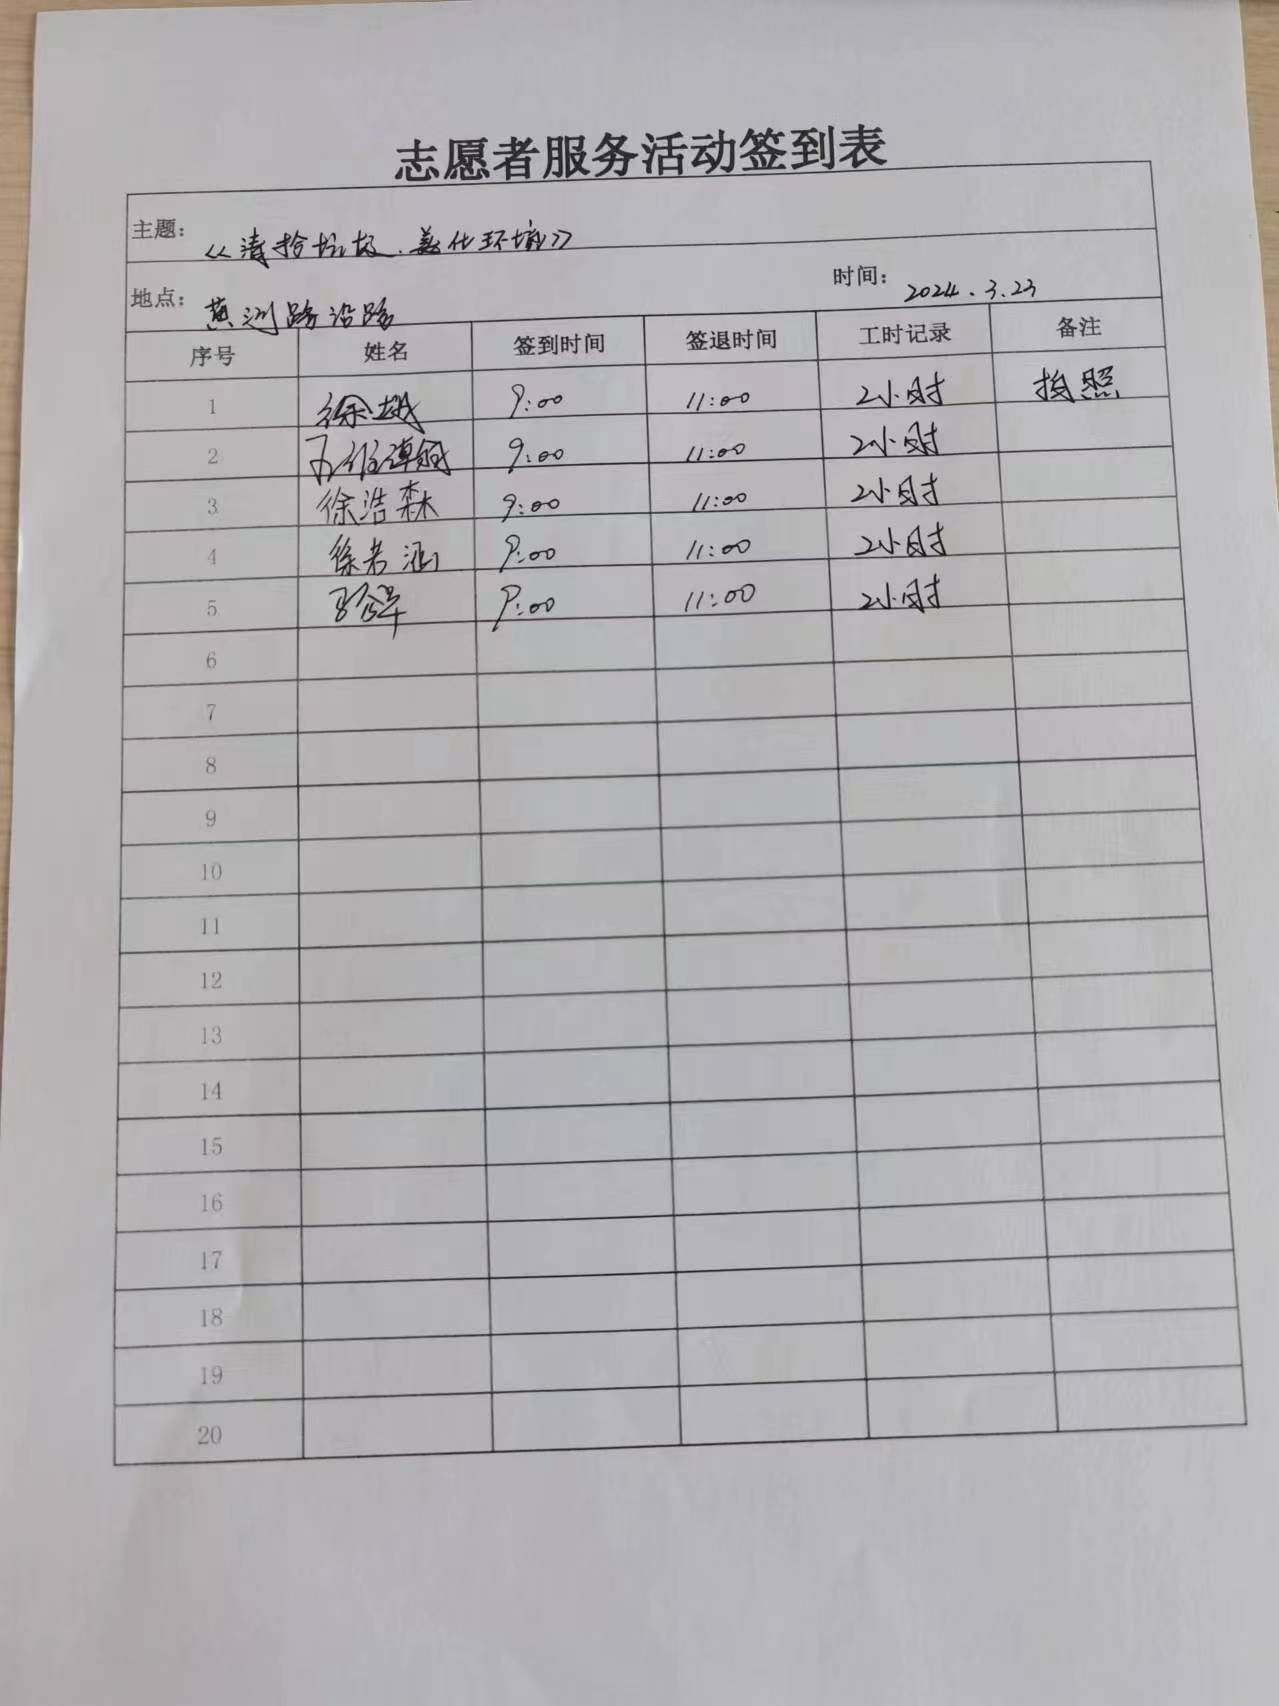 志愿者服务活动签到表
主题： 《清拾垃圾.美化环境》
地点： 黄洲路沿路 时间： 2024.3.23
序号 姓名 签到时间 签退时间 工时记录 备注
1 徐越 9:00 11:00 2小时 拍照
2 9:00 11:00 2小时
3 徐浩森 9:00 11:00 2小时
4 徐若涵 9:00 11:00 2小时
5 9:00 11:00 2小时
6
7
8
9
10
11
12
13
14
15
16
17
18
19
20